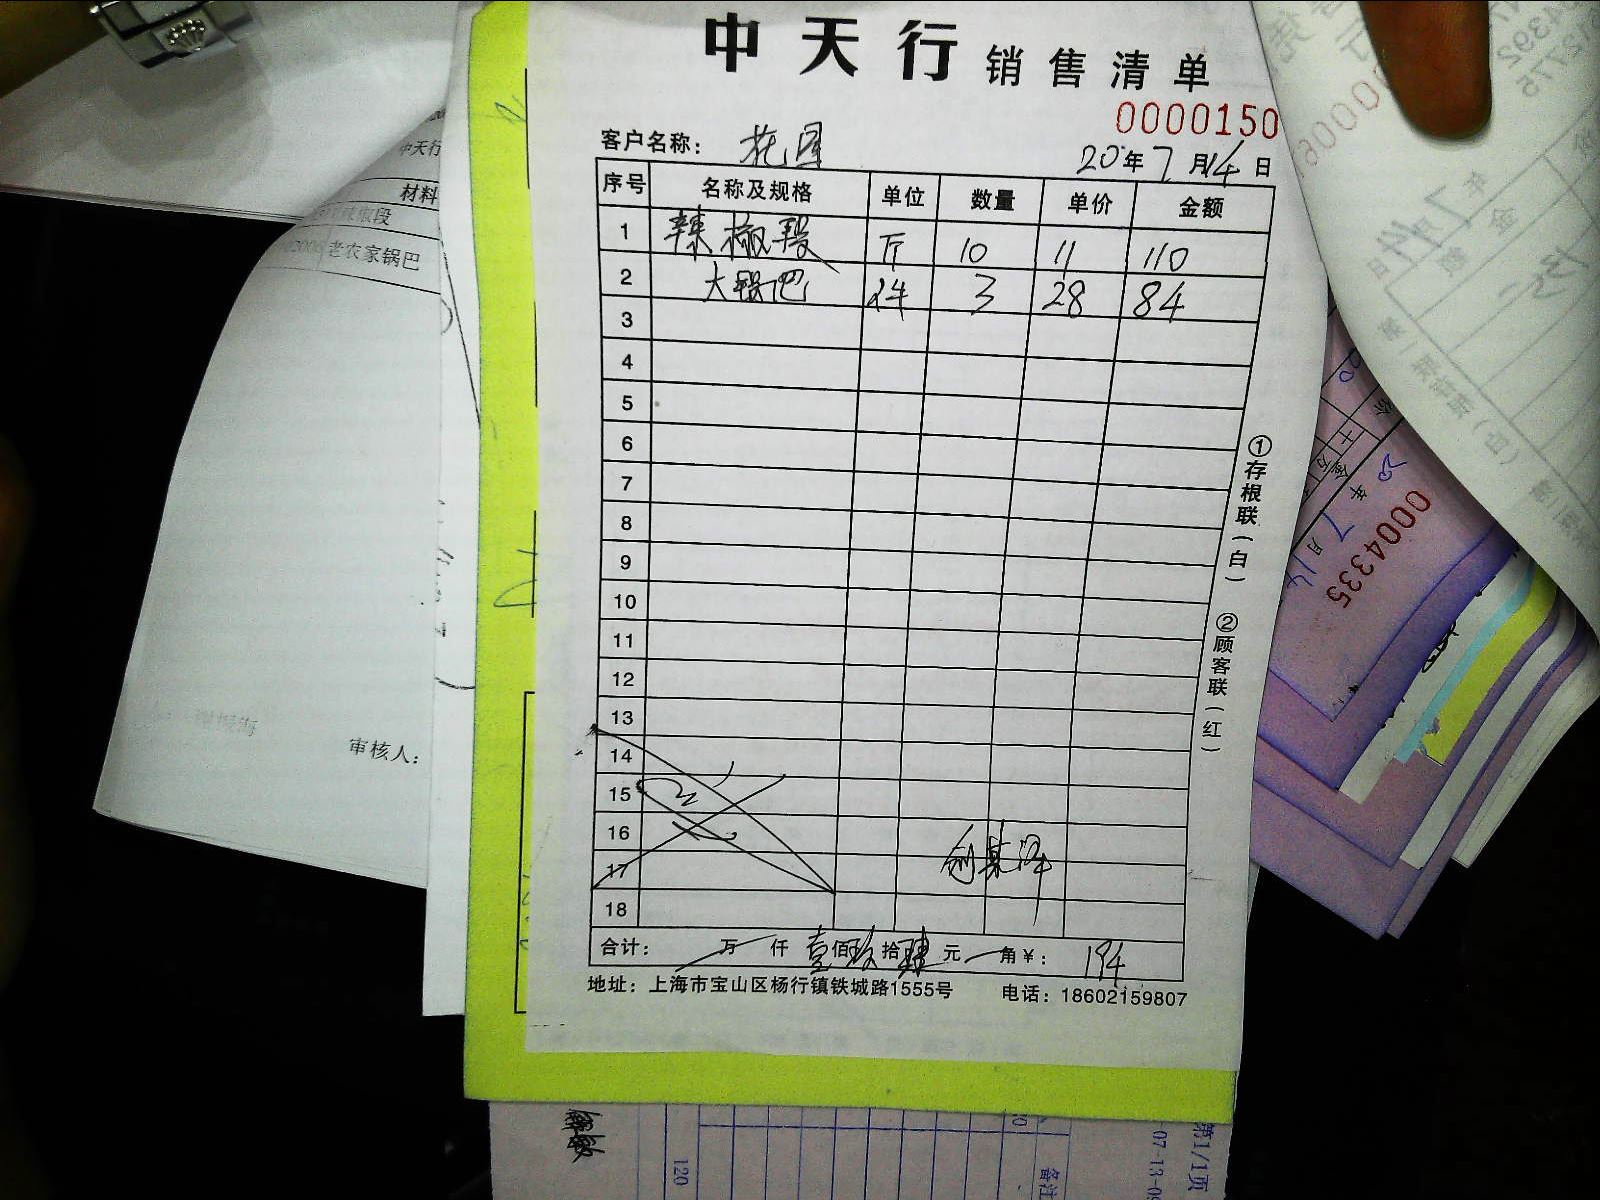 中天行 销售清单
0000150
客户名称： 花园
20年7月14日
序号 名称及规格 单位 数量 单价 金额
1 辣椒段 斤 10 11 110
2 大锅巴 件 3 28 84
3
4
5
6
7
8
9
10
11
12
13
14
15
16
17
18
合计： 万 仟 壹佰玖拾肆元 角￥： 194
地址：上海市宝山区杨行镇铁城路1555号 电话：18602159807
①存根联（白）
②顾客联（红）
中天行
材料
辣椒段
老农家锅巴
审核人：
0004335
20年7月14
120
备注
第1/1页